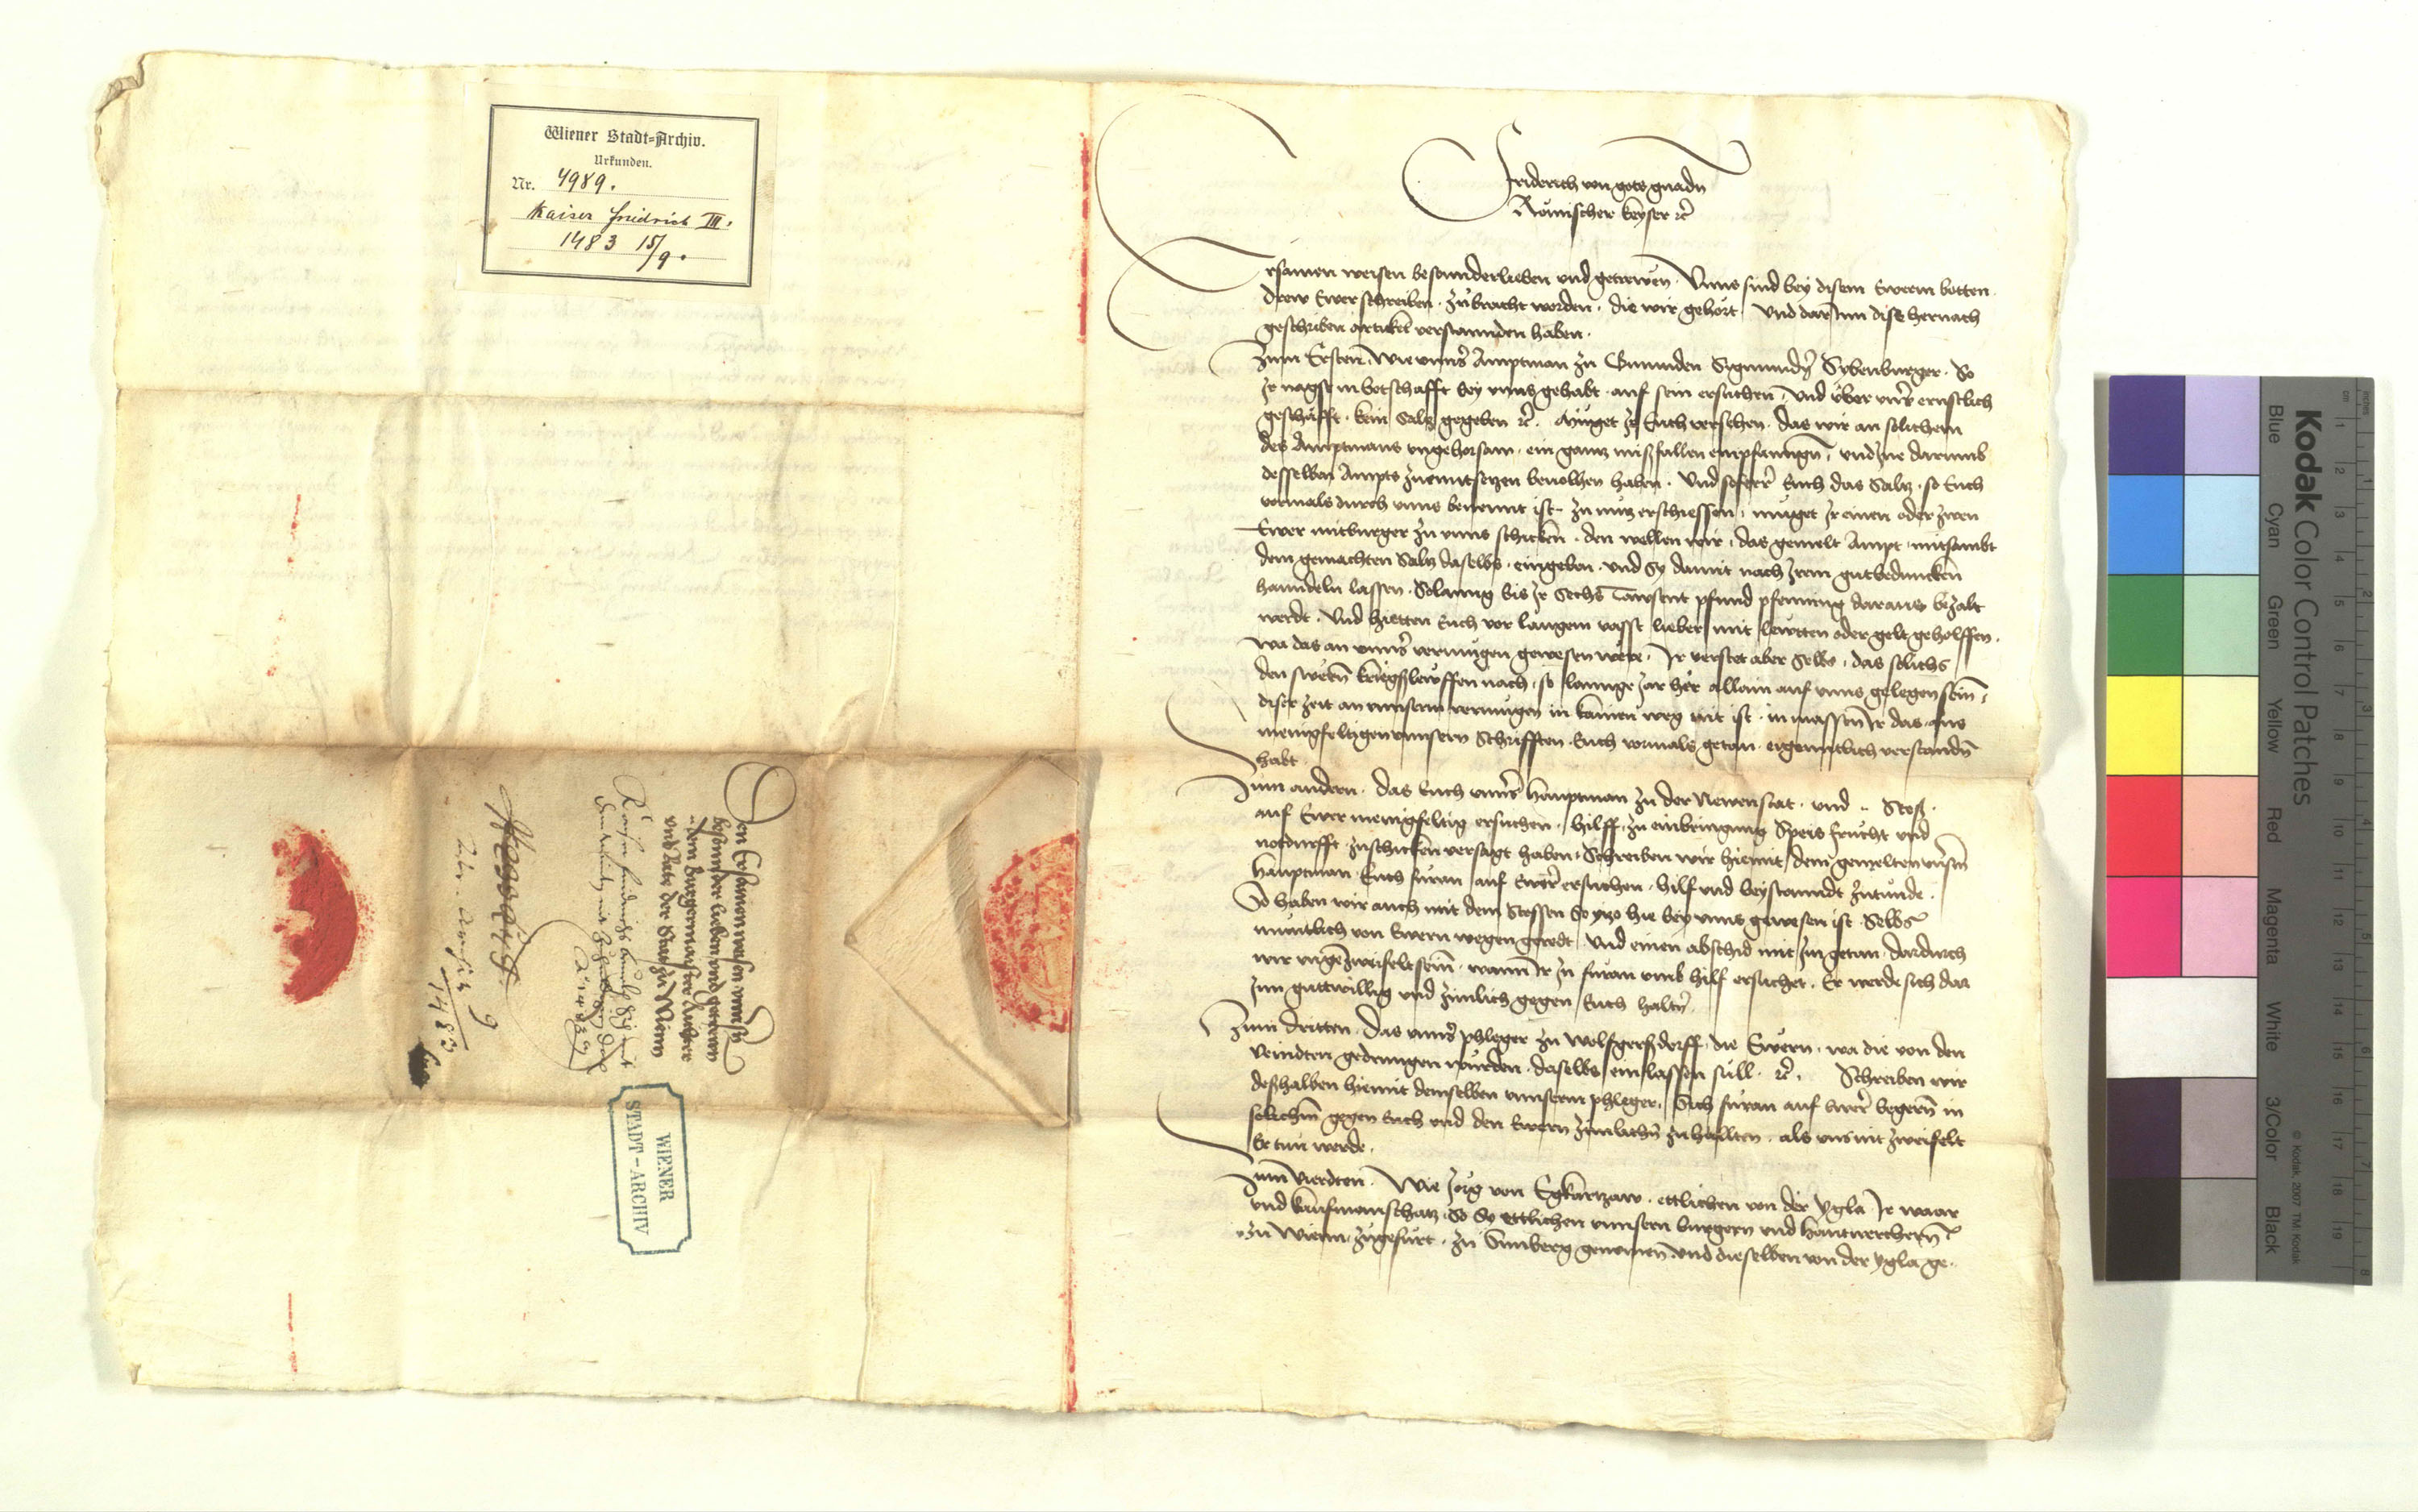 Wiener Stadt-Archiv.
Urkunden.
Nr. 4989.
Kaiser Friedrich III.
1483 15/9.
Friderich von gots gnadn
Römischer keyser rc
Ersamen weisen besonnderlieben und getrewen. Unns sind bey disem Ewerm botten
drew Ewer schreiben zubracht worden, die wir gehört und darInn dise hernach
geschriben artickel verstannden haben.
Zum Ersten, wie unnser Amptman zu Gmunden Sigmund Sybenburger, So
Ir nagst in botschafft bey unns gehabt, auf sein ersuchen, und über unser ernstlich
geschäfft, kein Saltz gegeben rc. Müget Ir Euch versehen, das wir an solichem
des Amptmans ungehorsam ein gantz mißfallen empfanngen, und Ine darumb
desselben Ampts zuenntsetzen bevolhen haben. Und soferr Euch das Saltz, so Euch
vormals durch unns benennt ist, zu nutz erschiessen, müget Ir einen oder zwen
Ewer mitburger zu unns schicken, den wellen wir das gemelt Ampt mitsambt
dem gemachten Saltz daselbs eingeben, und Sy damit nach Irem gutbeduncken
hanndeln lassen, Solanng bis Ir Sechs Tawsent pfund pfenning daraus bezalt
werdt. Und hietten Euch vor lanngem vasst lieber mit lewtten oder gelt geholffen,
wa das an unnserm vermugen gewesen were. Ir verstet aber Selbs, das solichs
den swern kriegßlewffen nach, so lannge Jar her allain auf unns gelegen sein,
diser zeit an unnserm vermugen in kainen weg nit ist, in massen Ir das aus
menigfeltigen unnsern Schrifften Euch vormals getan eigenntlich verstanden
habt.
Zum andern, das Euch unnser haubtman zu der Newenstat und .. Stoß
auf Ewer menigfeltig ersuchen hilff zu einbringung Speis frucht und
notdurfft zuschicken versagt haben, Schreiben wir hiemit dem gemelten unserm
haubtman Euch furan auf Ewer ersuchen hilf und beystanndt zutunde.
So haben wir auch mit dem Stossen So ytzo hie bey unns gewesen ist Selbs
muntlich von Ewern wegen geredt und einen abschid mit Im getan, dardurch
wir ungezweifelt sein, wann Ir In furan umb hilf ersuchet, Er werde sich dar
Inn guttwillig und zimlich gegen Euch halten.
Zum dritten, das unnser phleger zu Wolfgersdorff die Ewern, wa die von den
veindten gedrungen wurden, daselbs einlassen sull rc. Schreiben wir
deßhalben hiemit demselben unnserm phleger, Sich furan auf Ewer begern in
solichem gegen Euch und den Ewern zimlichen zuhallten, als uns nit zweifelt
Er tun werde.
Zum vierdten, Wie Jorg von Egkartzaw ettlichen von der Ygla Ir waar
und kaufmanschatz, So Sy ettlichen unnsern burgern und hantwerchern
zu Wienn zugefurt, zu Simberg genomen und dieselben von der Ygla ge-
Den Ersamen weisen unnsern
besonnder lieben und getrewen
.. dem Burgermaister Richter
und Rate der Stat zu Wienn
1483
WIENER
STADT-ARCHIV
Kodak Color Control Patches
Blue Cyan Green Yellow Red Magenta White 3/Color Black
© Kodak, 2007 TM: Kodak